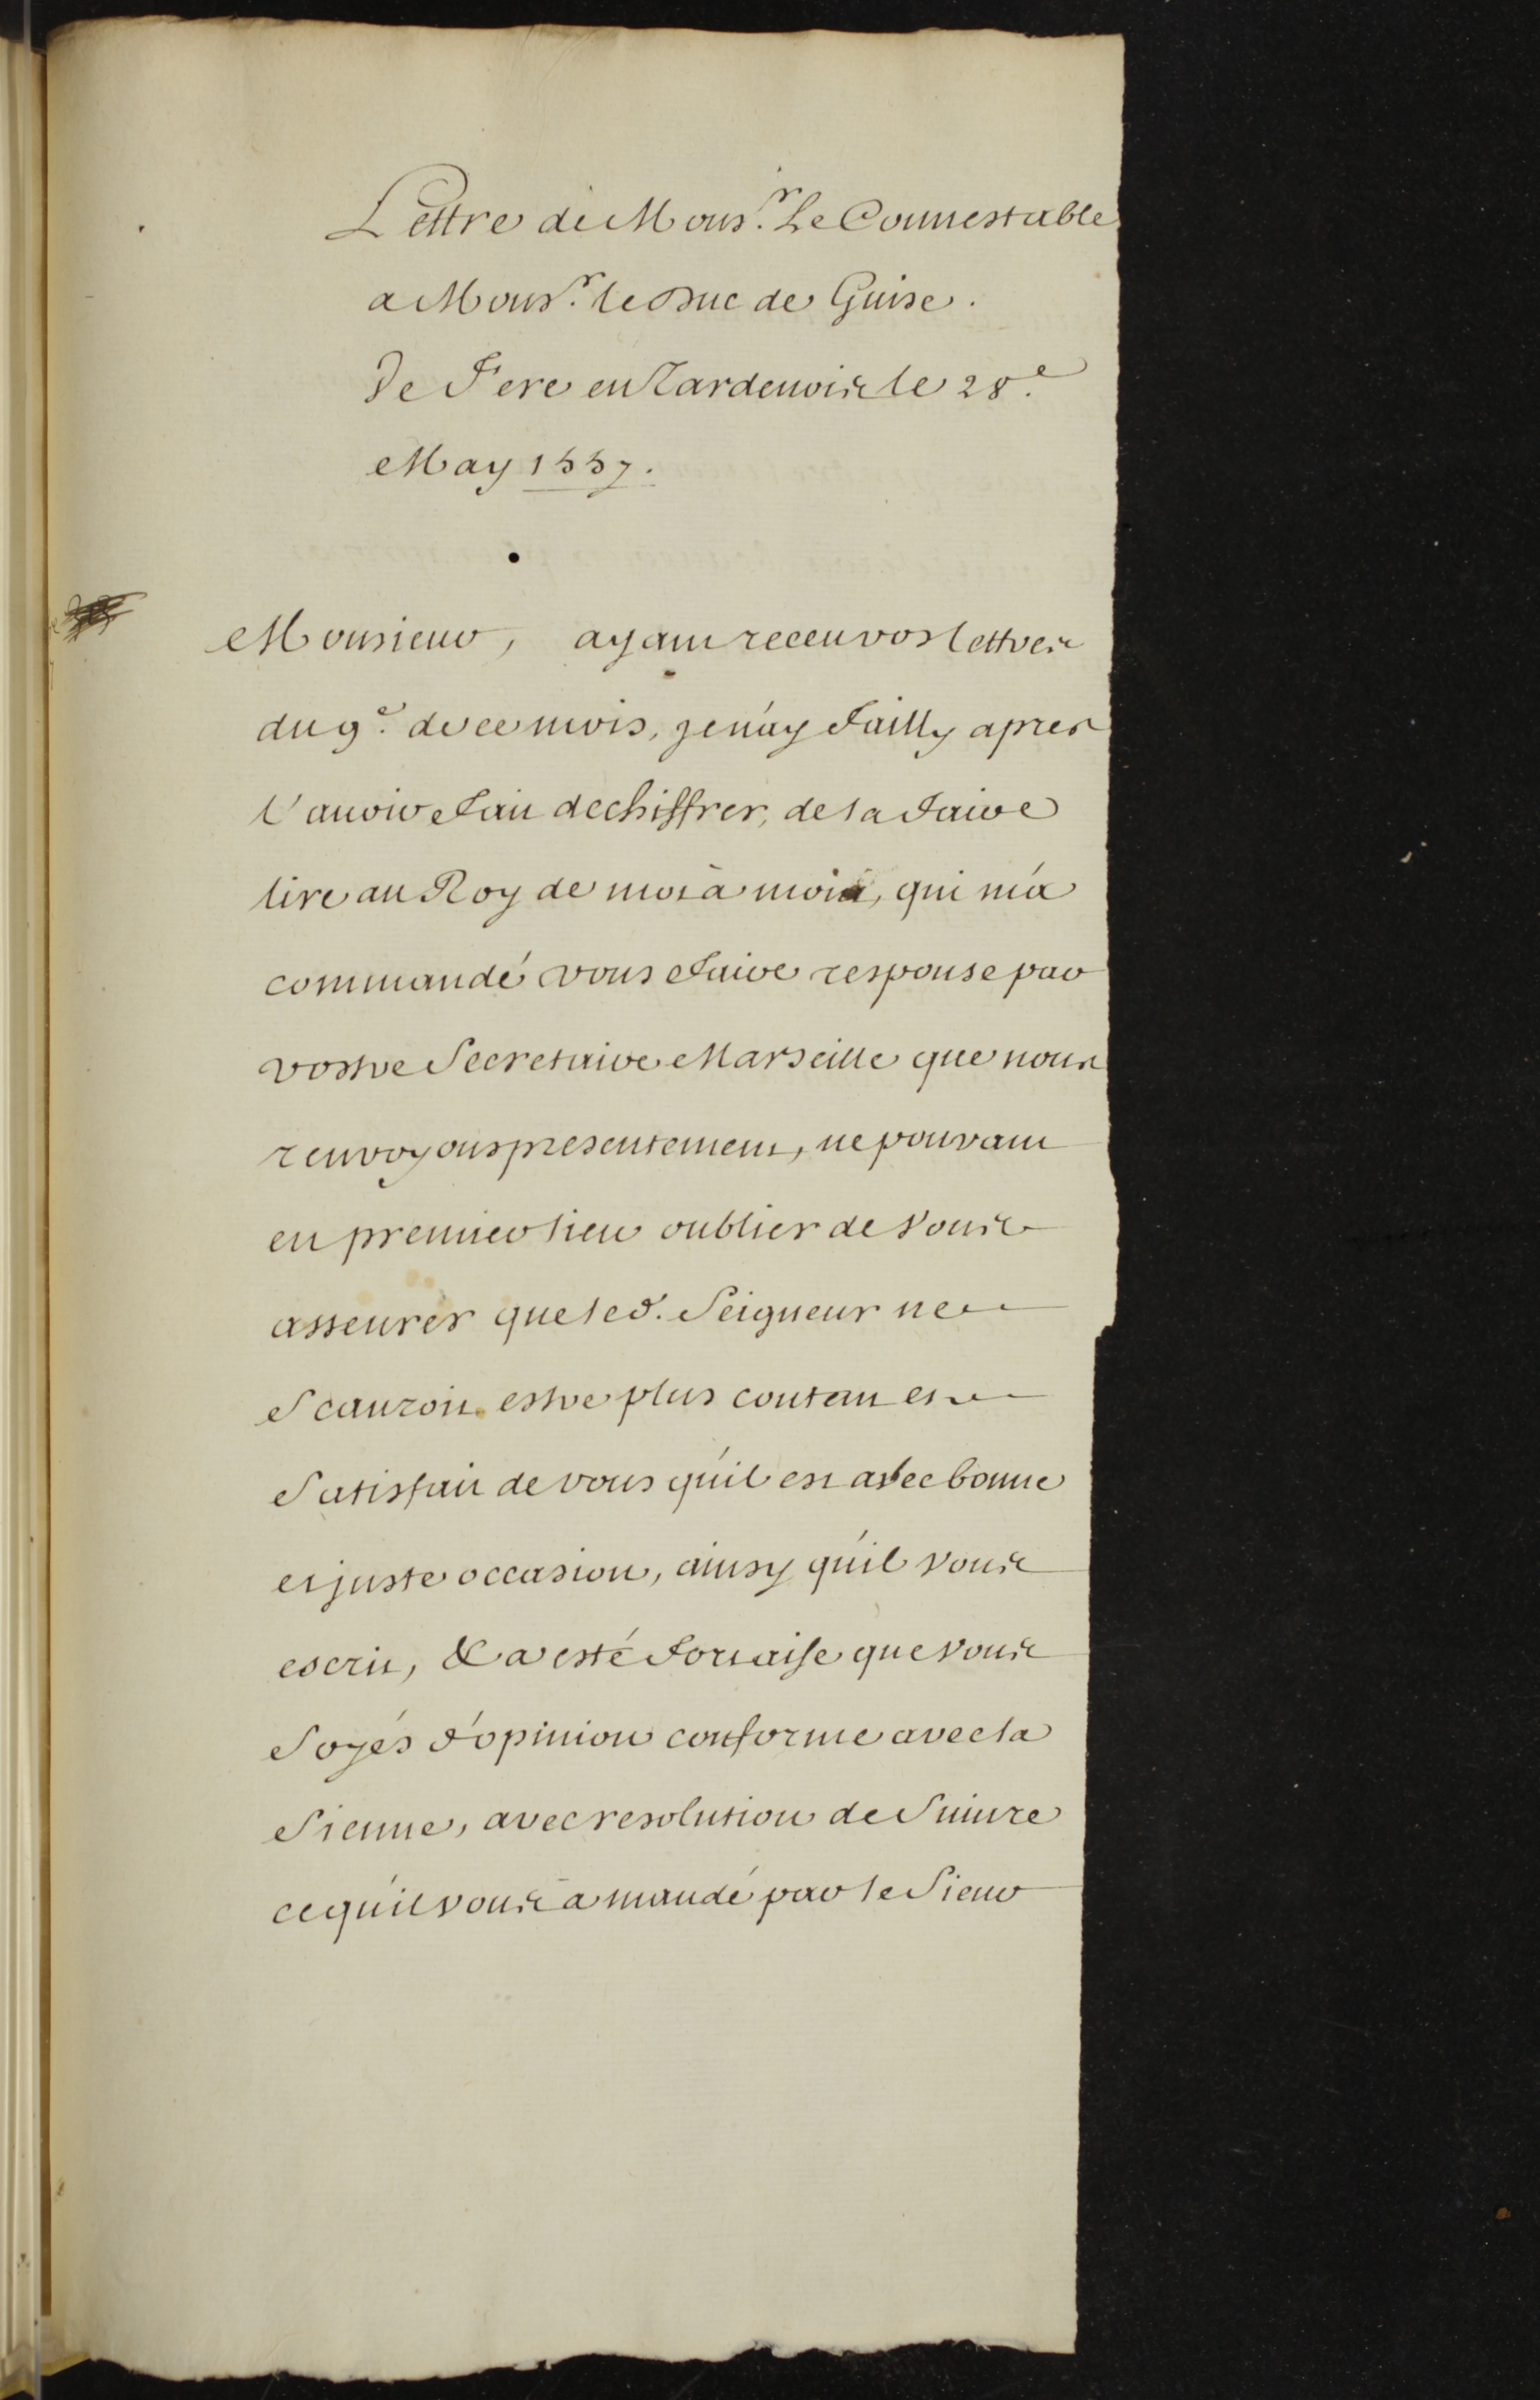 Lettre de Mons.r Le Connestable
a Mons.r le Duc de Guise.
De Fere en Tardenois le 28.e
May 1557.
Monsieur, ayant receu vos lettres
du 9.e de ce mois, je n'ay failly apres
l'auoir fait dechiffrer, de la faire
lire au Roy de mot à mot, qui m'a
commandé vous faire response par
vostre Secretaire Marseille que nous
renvoyons presentement, ne pouvant
en premier lieu oublier de vous
asseurer que led. Seigneur ne
Scauroit estre plus contant et
Satisfait de vous qu'il est avec bonne
et juste occasion, ainsy qu'il vous
escrit, & a esté fort aise que vous
Soyés d'opinion conforme avec la
Sienne, avec resolution de Suiure
ce qu'il vous a mandé par le Sieur